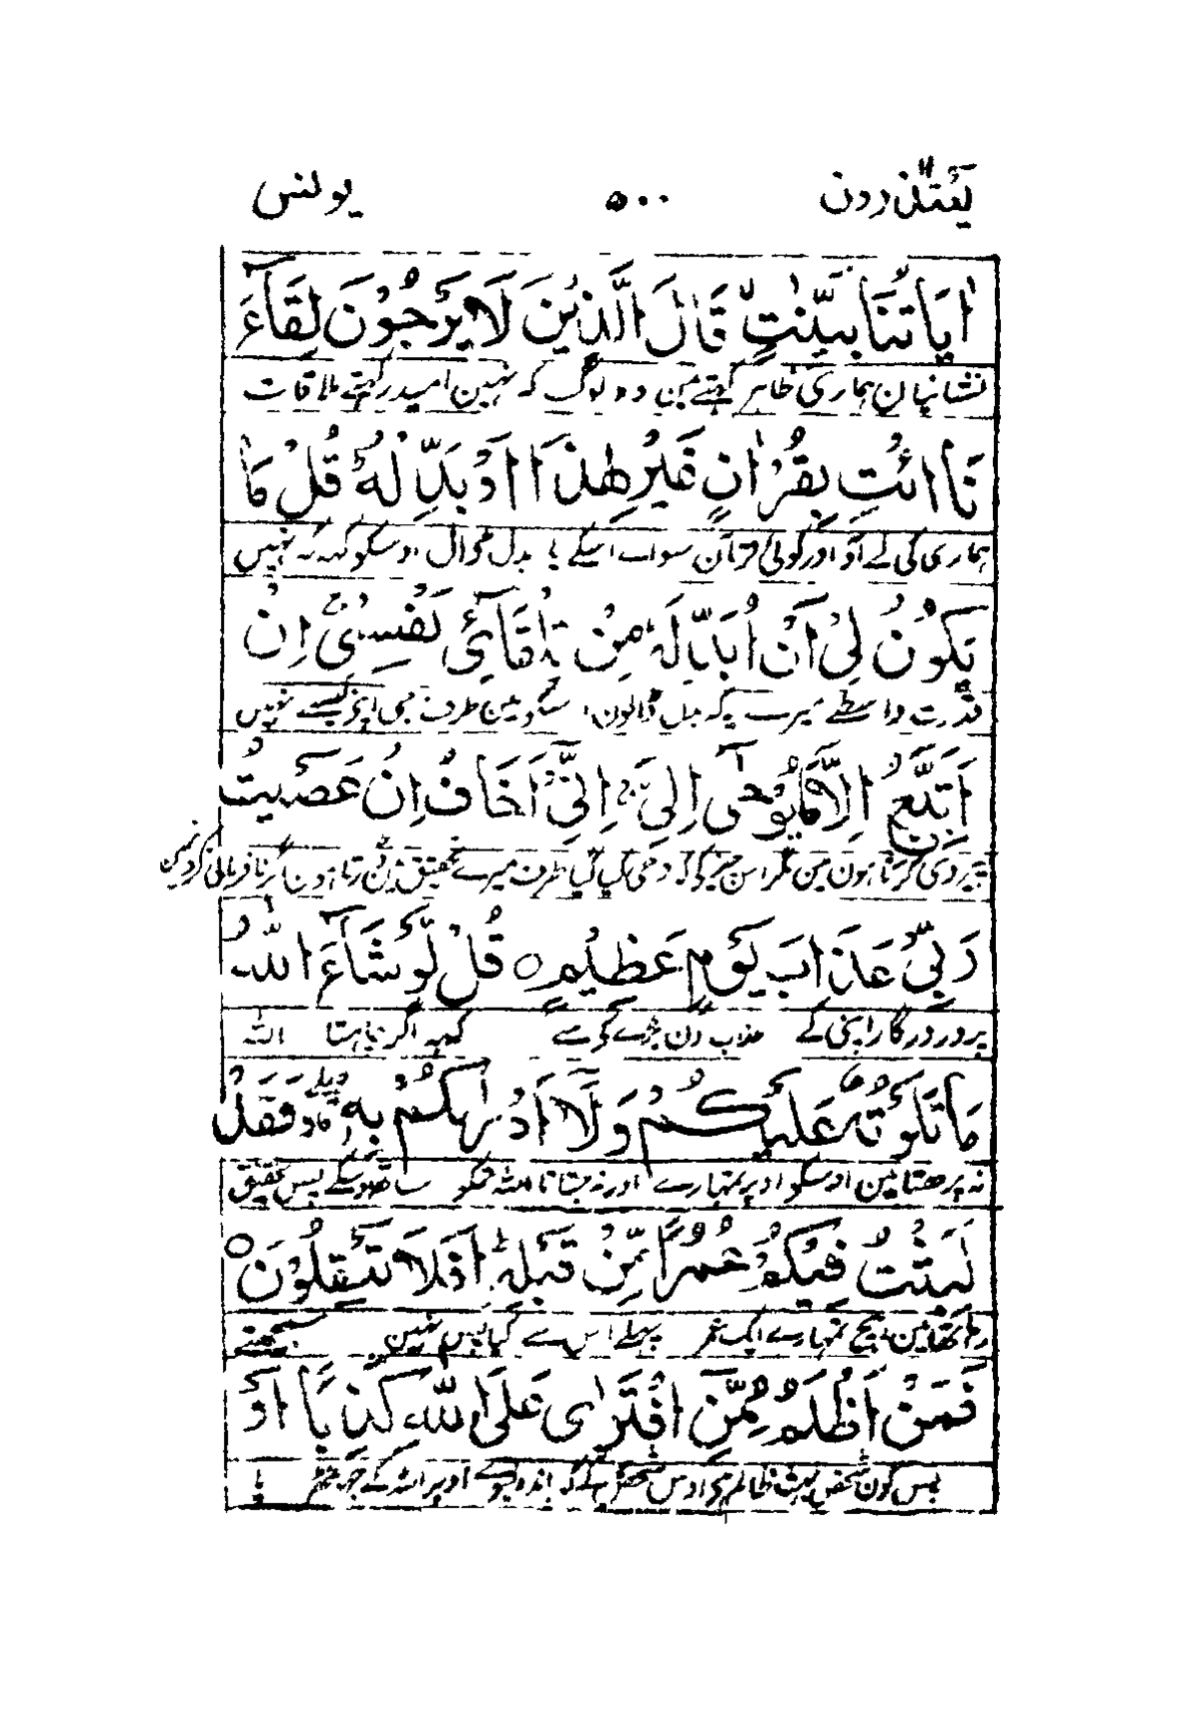 یعتذرون ۵۰۰ یونس
اٰیَاتُنَا بَیِّنٰتٍ قَالَ الَّذِیْنَ لَا یَرْجُوْنَ لِقَآءَ
نشانیان ہماری ظاہر کہتے ہین وہ لوگ کہ نہین امید رکہتے ملاقات
نَا ائْتِ بِقُرْاٰنٍ غَیْرِ هٰذَا اَوْ بَدِّلْهُ قُلْ مَا
ہماری کی لے آو اور کوئی قرآن سواے اسکے یا بدل ڈال اوسکو کہہ کہ نہیں
یَكُوْنُ لِیْ اَنْ اُبَدِّلَهٗ مِنْ تِلْقَآئِ نَفْسِیْ اِنْ
قدرت واسطے میرے یہ کہ بدل ڈالون اسکو مین طرف جی اپنی کیسے نہیں
اَتَّبِعُ اِلَّا مَا یُوْحٰۤى اِلَیَّ اِنِّیْۤ اَخَافُ اِنْ عَصَیْتُ
پیروی کرتا ہون مین مگر اس چیز کی کہ وحی کیا گیا طرف میرے تحقیق مین ڈرتا ہون اگر نافرمانی کرون مین
رَبِّیْ عَذَابَ یَوْمٍ عَظِیْمٍ ○ قُلْ لَّوْ شَآءَ اللّٰهُ
پروردگار اپنی کے عذاب دن بڑے کی سے کہہ اگر چاہتا اللہ
مَا تَلَوْتُهٗ عَلَیْكُمْ وَلَاۤ اَدْرٰىكُمْ بِهٖ فَقَدْ
نہ پڑھتا مین اوسکو اوپر تمہارے اور نہ جتاتا اللہ تمکو ساتھ اوسکے پس تحقیق
لَبِثْتُ فِیْكُمْ عُمُرًا مِّنْ قَبْلِهٖ اَفَلَا تَعْقِلُوْنَ ○
رہا تھا مین بیچ تمہارے ایک عمر پہلے اس سے کیا پس نہین سمجھتے
فَمَنْ اَظْلَمُ مِمَّنِ افْتَرٰى عَلَى اللّٰهِ كَذِبًا اَوْ
پس کون شخص بہت ظالم ہی اوس شخص سے کہ باندہ لیوے اوپر اللہ کے جہوٹھ یا